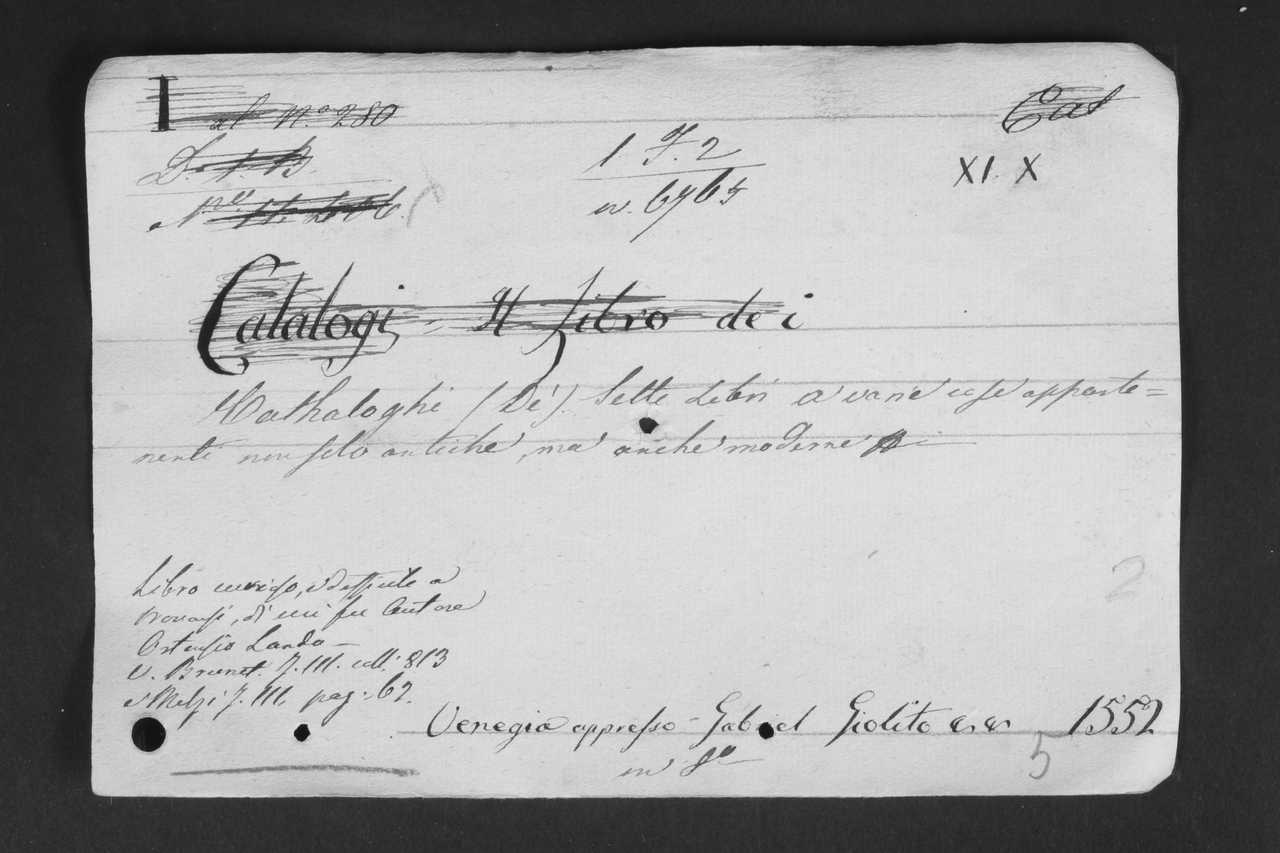 I al N.º 280
Cat
D. 1. B.
1 F. 2
XI. X
N.º
n. 6765
Catalogi - Il Libro dei
Cathaloghi (De') Sette Libri a varie cose apparte=
nenti non solo antiche, ma anche moderne
Libro curioso, e difficile a
trovarsi, di cui fu Autore
Ortensio Lando -
V. Brunet. T. III. coll: 813
e Melzi T. III. pag: 62.
2
Venegia appresso - Gabriel Giolito &. &. 1552
in 8º
5